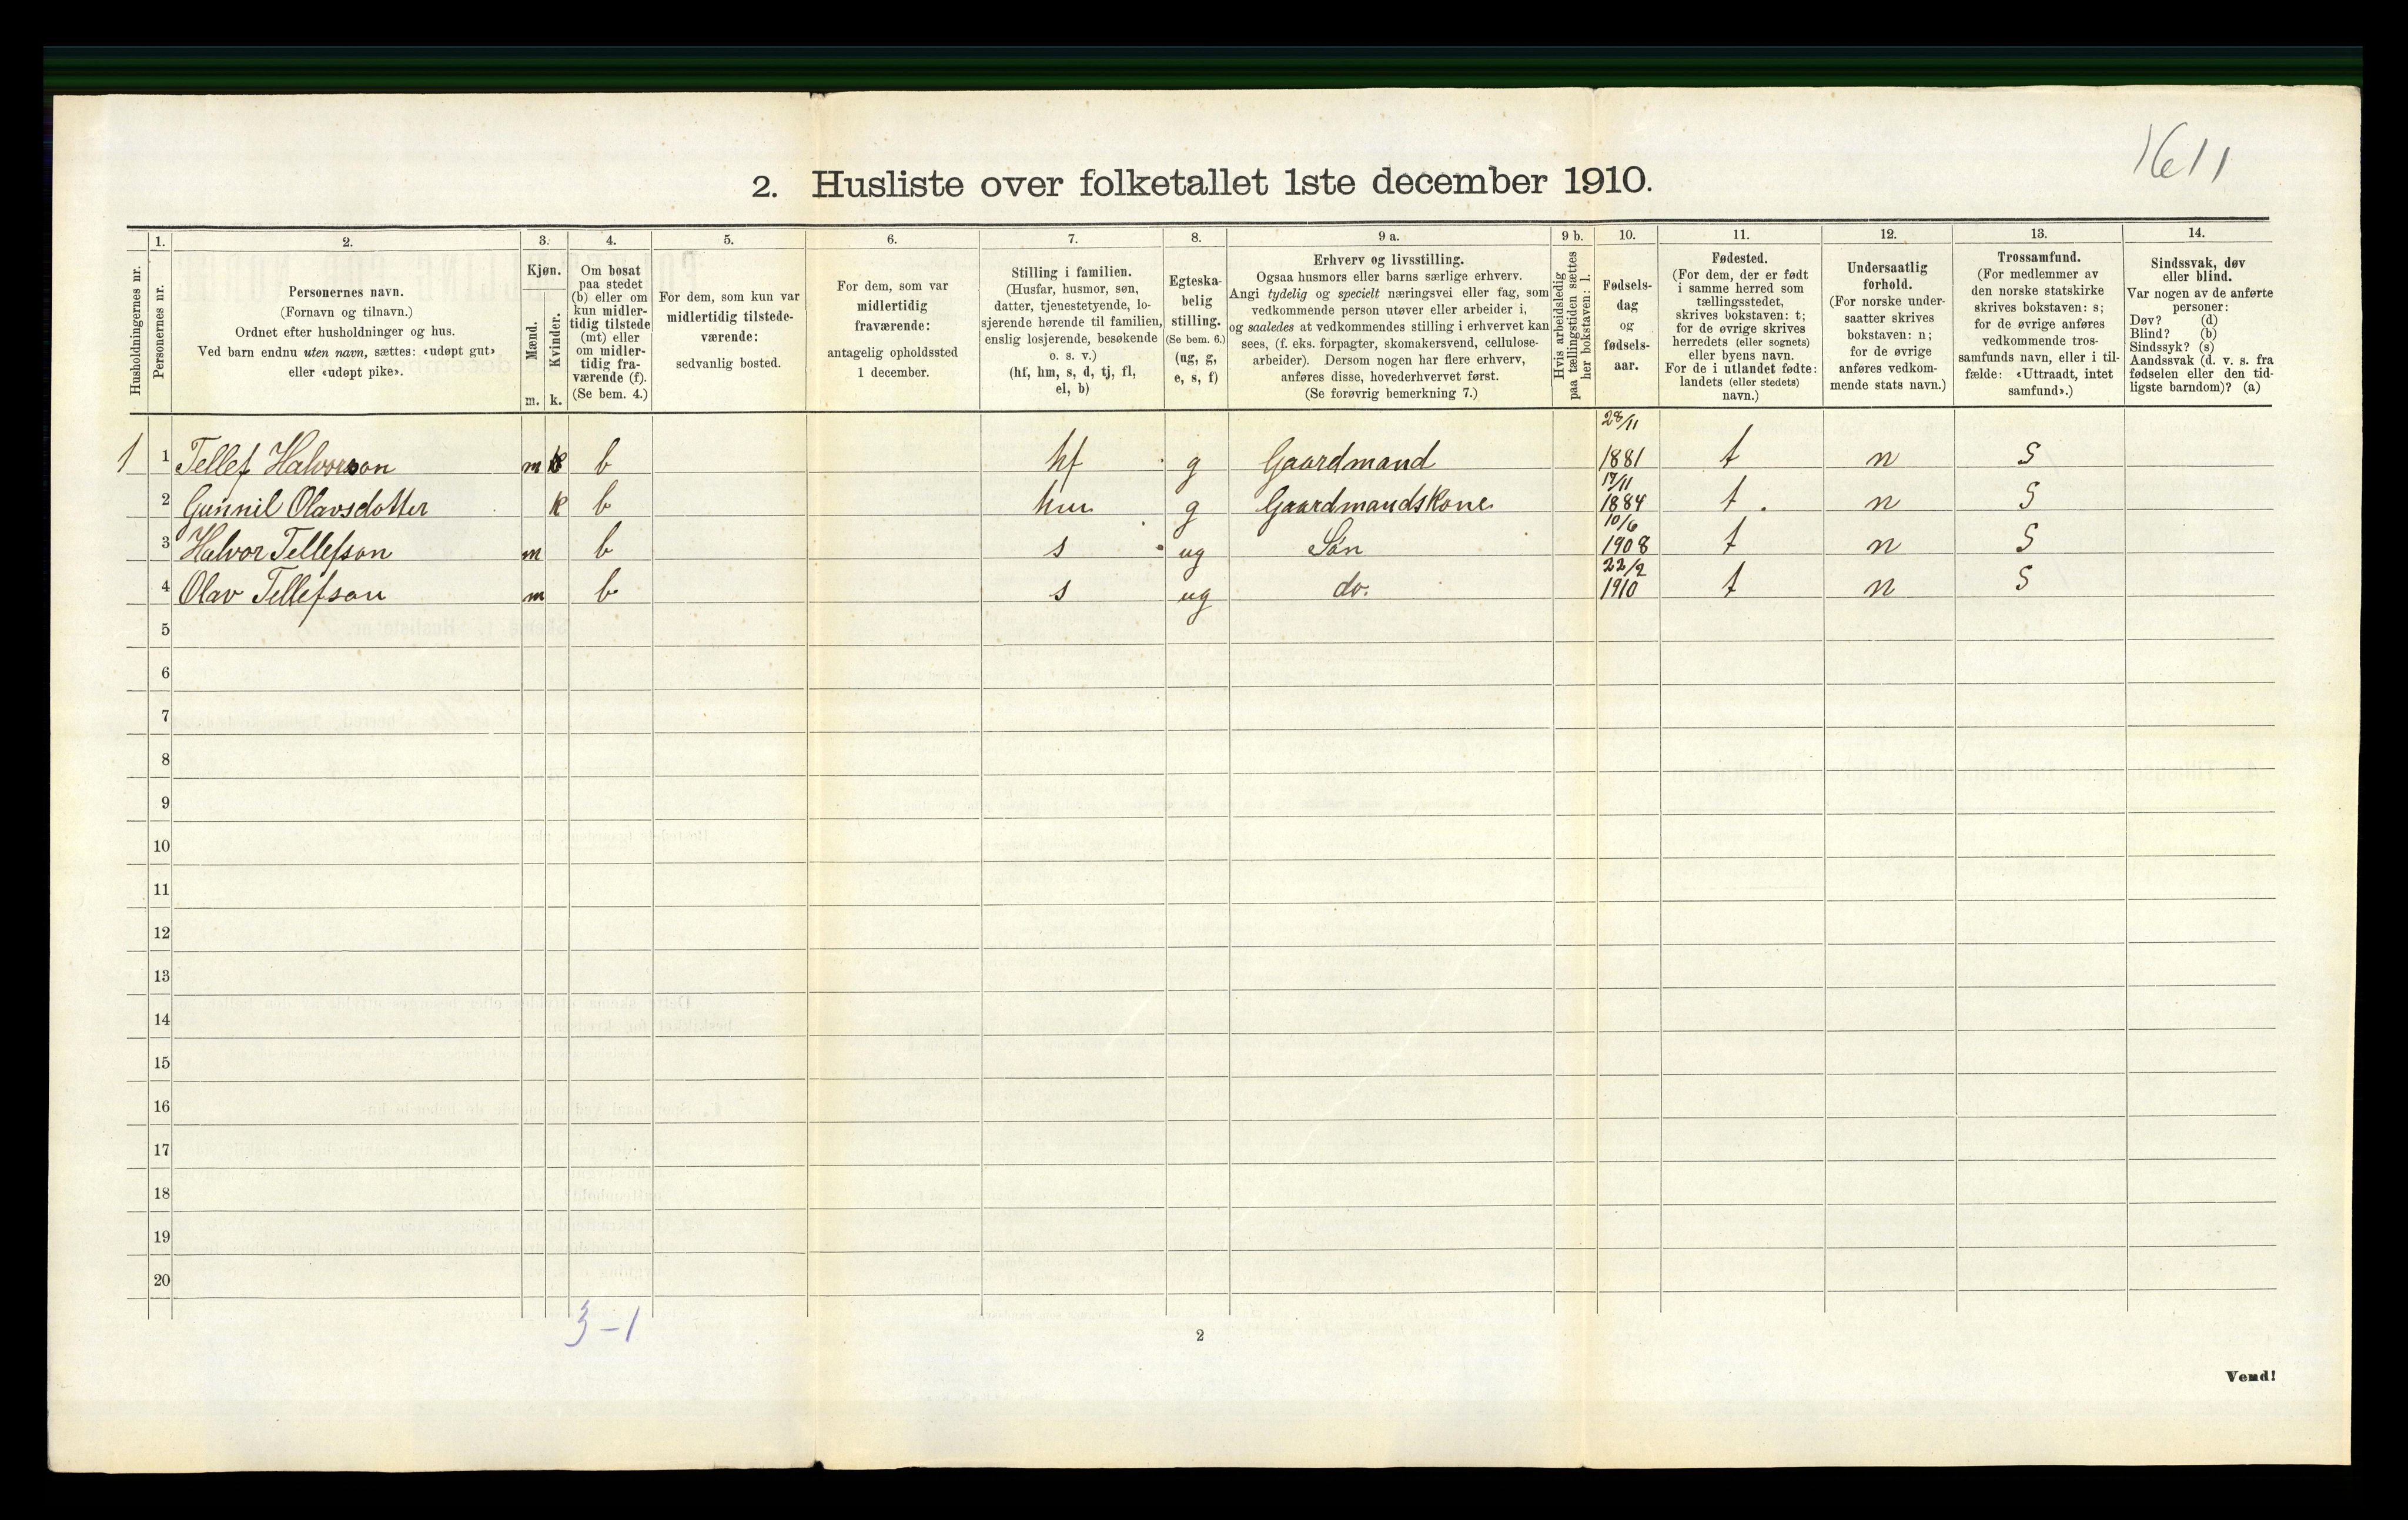 1611
2. Husliste over folketallet 1ste december 1910.
Husholdningernes nr.
1.
Personernes nr.
2.
Personernes navn.
(Fornavn og tilnavn.)
Ordnet efter husholdninger og hus.
Ved barn endnu uten navn, sættes: «udøpt gut»
eller «udøpt pike».
3.
Kjøn.
Mænd.
Kvinder.
m. k.
4.
Om bosat
paa stedet
(b) eller om
kun midler-
tidig tilstede
(mt) eller
om midler-
tidig fra-
værende (f).
(Se bem. 4.)
5.
For dem, som kun var
midlertidig tilstede-
værende:
sedvanlig bosted.
6.
For dem, som var
midlertidig
fraværende:
antagelig opholdssted
1 december.
7.
Stilling i familien.
(Husfar, husmor, søn,
datter, tjenestetyende, lo-
sjerende hørende til familien,
enslig losjerende, besøkende
o. s. v.)
(hf, hm, s, d, tj, fl,
el, b)
8.
Egteska-
belig
stilling.
(Se bem. 6.)
(ug, g,
e, s, f)
9 a.
Erhverv og livsstilling.
Ogsaa husmors eller barns særlige erhverv.
Angi tydelig og specielt næringsvei eller fag, som
vedkommende person utøver eller arbeider i,
og saaledes at vedkommendes stilling i erhvervet kan
sees, (f. eks. forpagter, skomakersvend, cellulose-
arbeider). Dersom nogen har flere erhverv,
anføres disse, hovederhvervet først.
(Se forøvrig bemerkning 7.)
9 b.
Hvis arbeidsledig
paa tællingstiden sættes
her bokstaven: l.
10.
Fødsels-
dag
og
fødsels-
aar.
11.
Fødested.
(For dem, der er født
i samme herred som
tællingsstedet,
skrives bokstaven: t;
for de øvrige skrives
herredets (eller sognets)
eller byens navn.
For de i utlandet fødte:
landets (eller stedets)
navn.)
12.
Undersaatlig
forhold.
(For norske under-
saatter skrives
bokstaven: n;
for de øvrige
anføres vedkom-
mende stats navn.)
13.
Trossamfund.
(For medlemmer av
den norske statskirke
skrives bokstaven: s;
for de øvrige anføres
vedkommende tros-
samfunds navn, eller i til-
fælde: «Uttraadt, intet
samfund».)
14.
Sindssvak, døv
eller blind.
Var nogen av de anførte
personer:
Døv? (d)
Blind? (b)
Sindssyk? (s)
Aandssvak (d. v. s. fra
fødselen eller den tid-
ligste barndom)? (a)
1 1 Tellef Halvorson m b hf g Gaardmand 28/11 1881 t n S
2 Gunnil Olavsdotter k b hm g Gaardmandskone 17/11 1884 t n S
3 Halvor Tellefson m b s ug Sön 10/6 1908 t n S
4 Olav Tellefson m b s ug do. 22/2 1910 t n S
5
6
7
8
9
10
11
12
13
14
15
16
17
18
19
20
3-1
2
Vend!